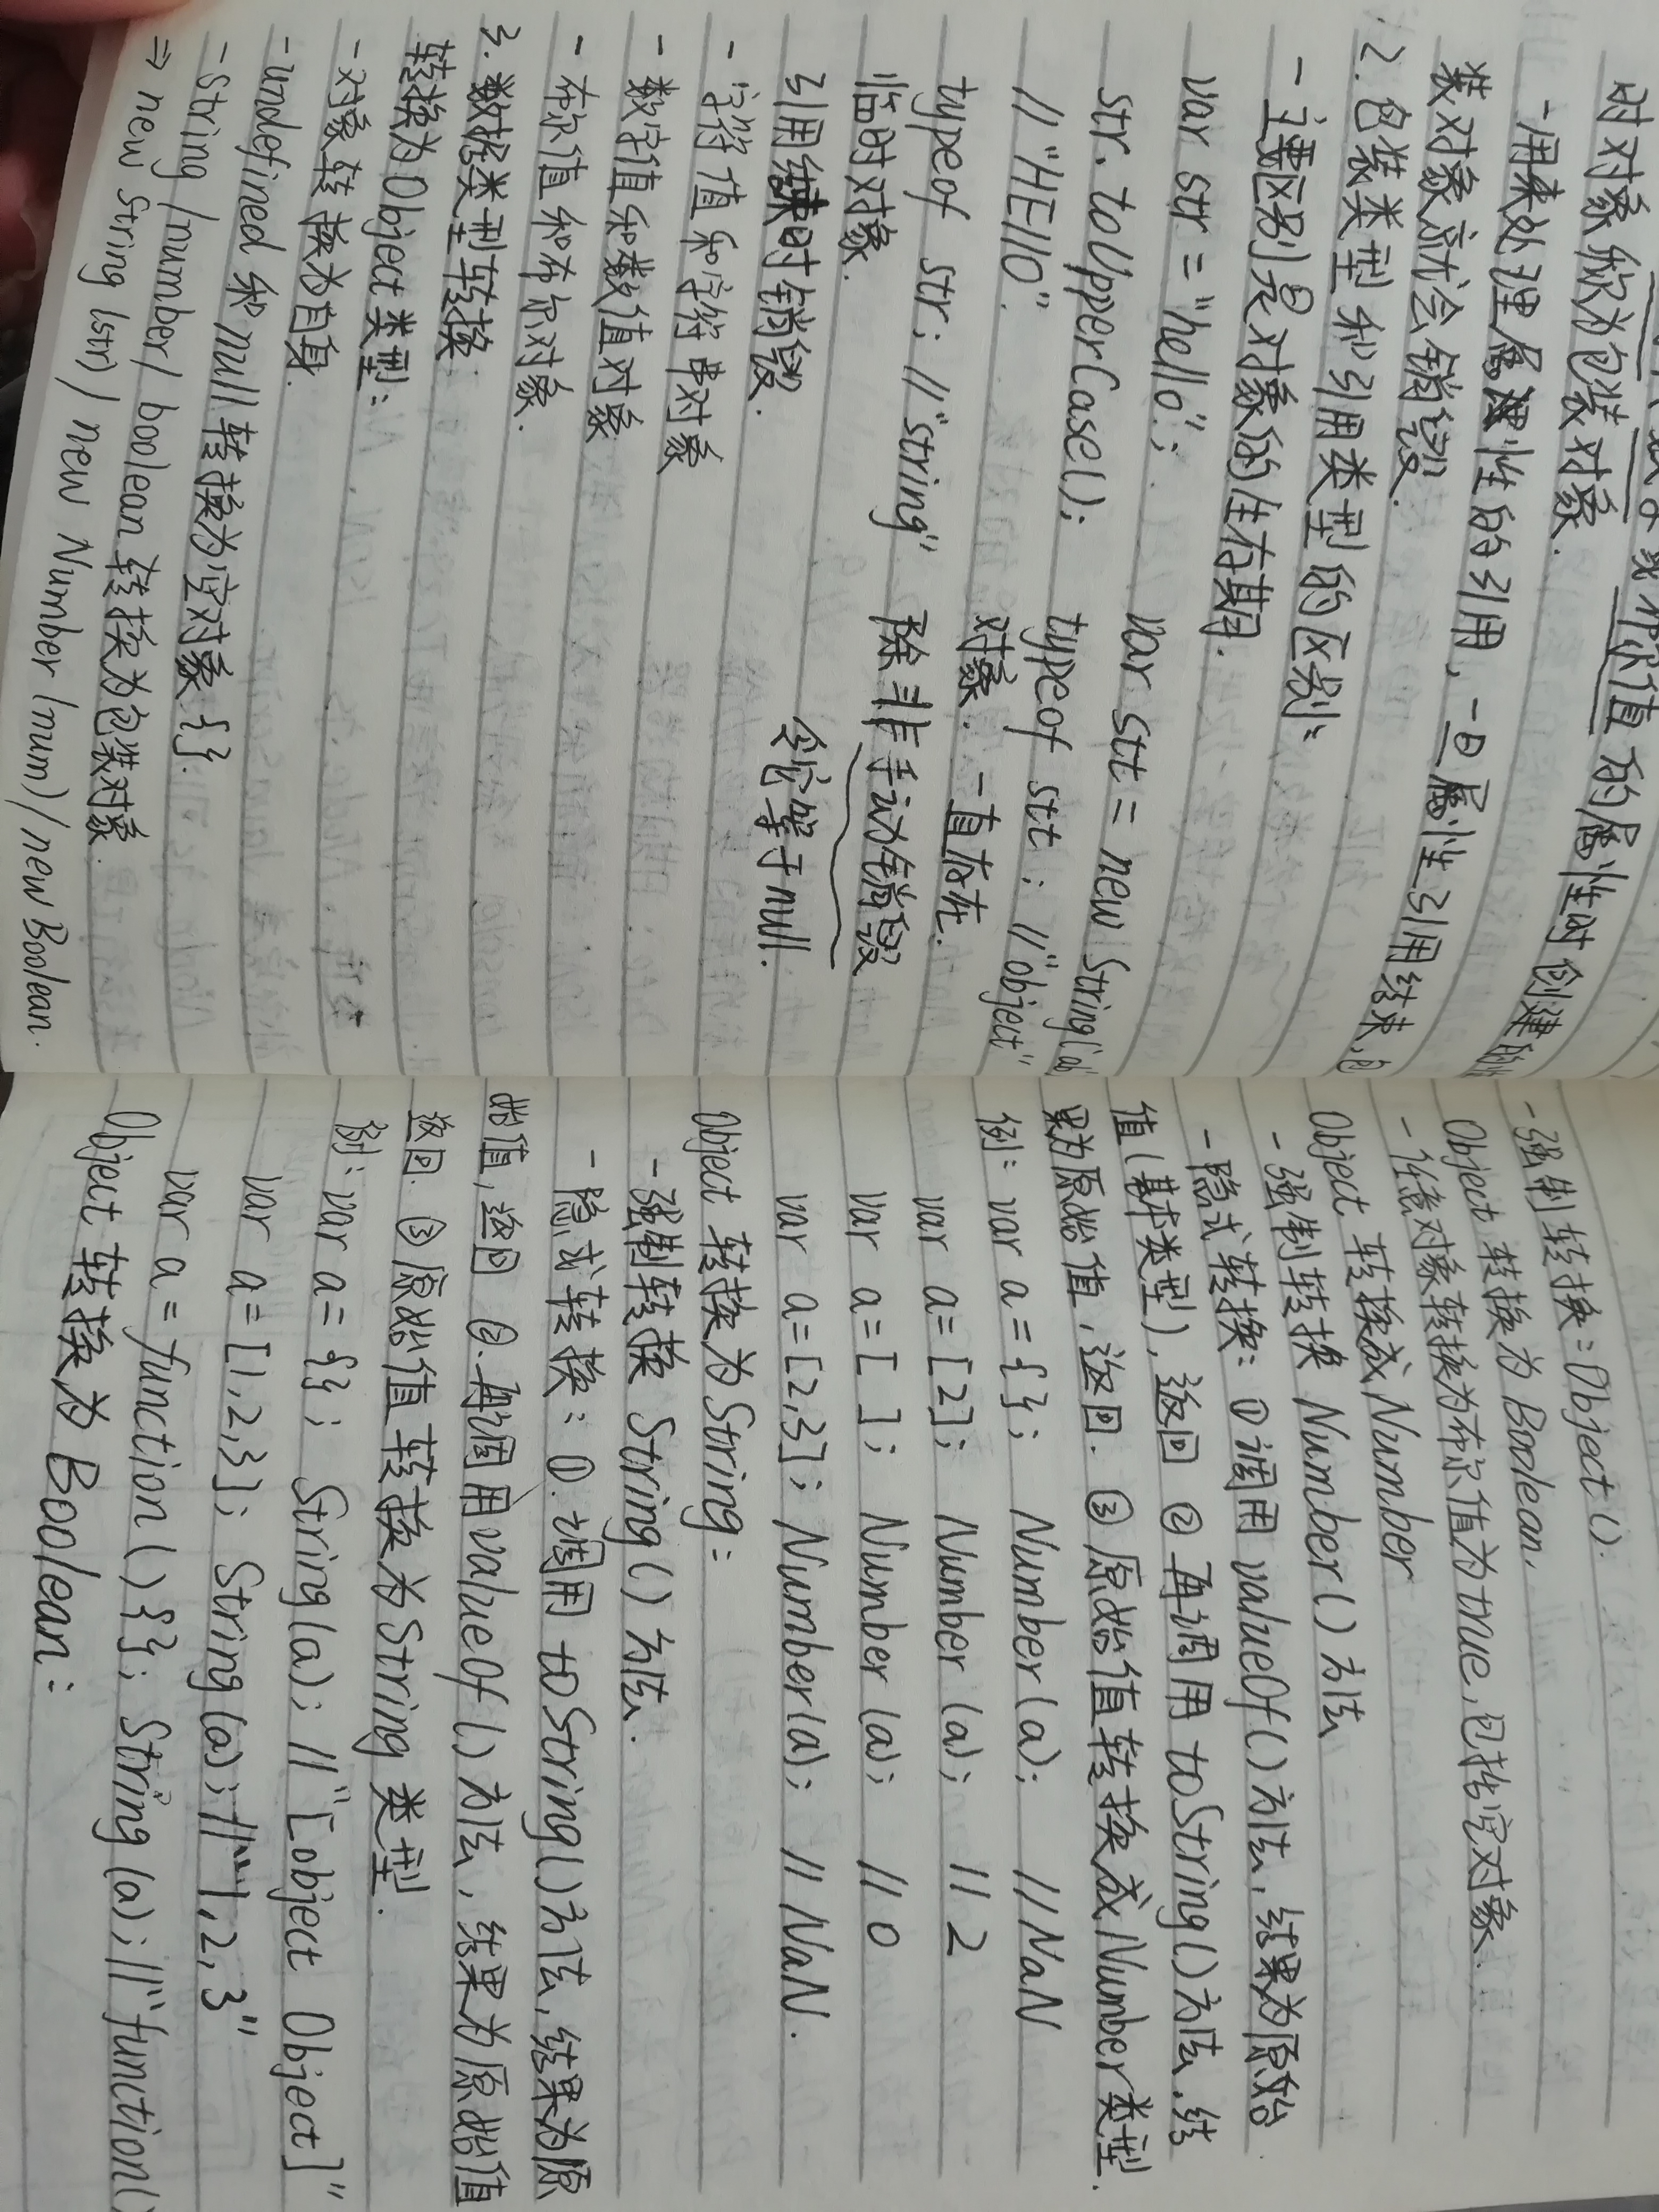 时对象称为包装对象.
-用来处理属性的引用,一旦属性引用结束,包
装对象就会销毁.
2.包装类型和引用类型的区别:
-主要区别是对象的生存期.
var str = "hello";
str.toUpperCase();
// "HEllO".
typeof str; //"string"
临时对象.
引用结束时销毁.
var stt = new String('ab
typeof stt; //"object"
对象.一直存在.
除非手动销毁
令它等于null.
-字符值和字符串对象
-数字值和数值对象
-布尔值和布尔对象.
3.数据类型转换:
转换为Object类型:
-对象转换为自身.
-undefined和null转换为空对象{}.
-string/number/boolean转换为包装对象.
⇒ new String(str)/new Number(num)/new Boolean.
-强制转换:Object().
Object转换为Boolean.
-任意对象转换为布尔值为true,包括空对象.
Object转换成Number
-强制转换 Number()方法
-隐式转换:①调用valueOf()方法,结果为原始
值(基本类型),返回②再调用toString()方法,结
果为原始值,返回.③原始值转换成Number类型.
例: var a = {}; Number(a); //NaN
var a=[2]; Number(a); // 2
var a=[ ]; Number(a); // 0
var a=[2,3]; Number(a); // NaN.
Object转换为String:
-强制转换String()方法.
-隐式转换:①.调用toString()方法,结果为原
始值,返回②.再调用valueOf()方法,结果为原始值
返回.③原始值转换为String类型.
例: var a={}; String(a); //"[object Object]"
var a=[1,2,3]; String(a); //"1,2,3"
var a=function(){}; String(a); //"function()
Object转换为Boolean: